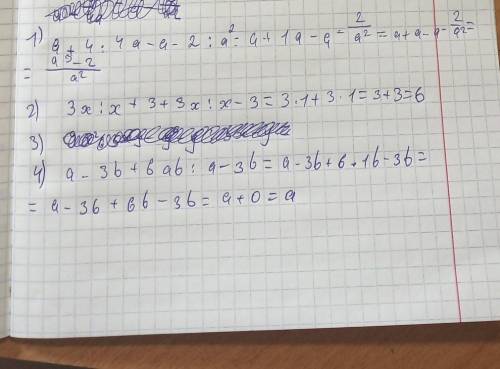 1) a + 4 : 4a - a - 2 : a² = a + 1a - a - 2/a² = a + a - a - 2/a² =
= a³ - 2 / a²
2) 3x : x + 3 + 3x : x - 3 = 3 · 1 + 3 · 1 = 3 + 3 = 6
3)
4) a - 3b + 6ab : a - 3b = a - 3b + 6 · 1b - 3b =
= a - 3b + 6b - 3b = a + 0 = a